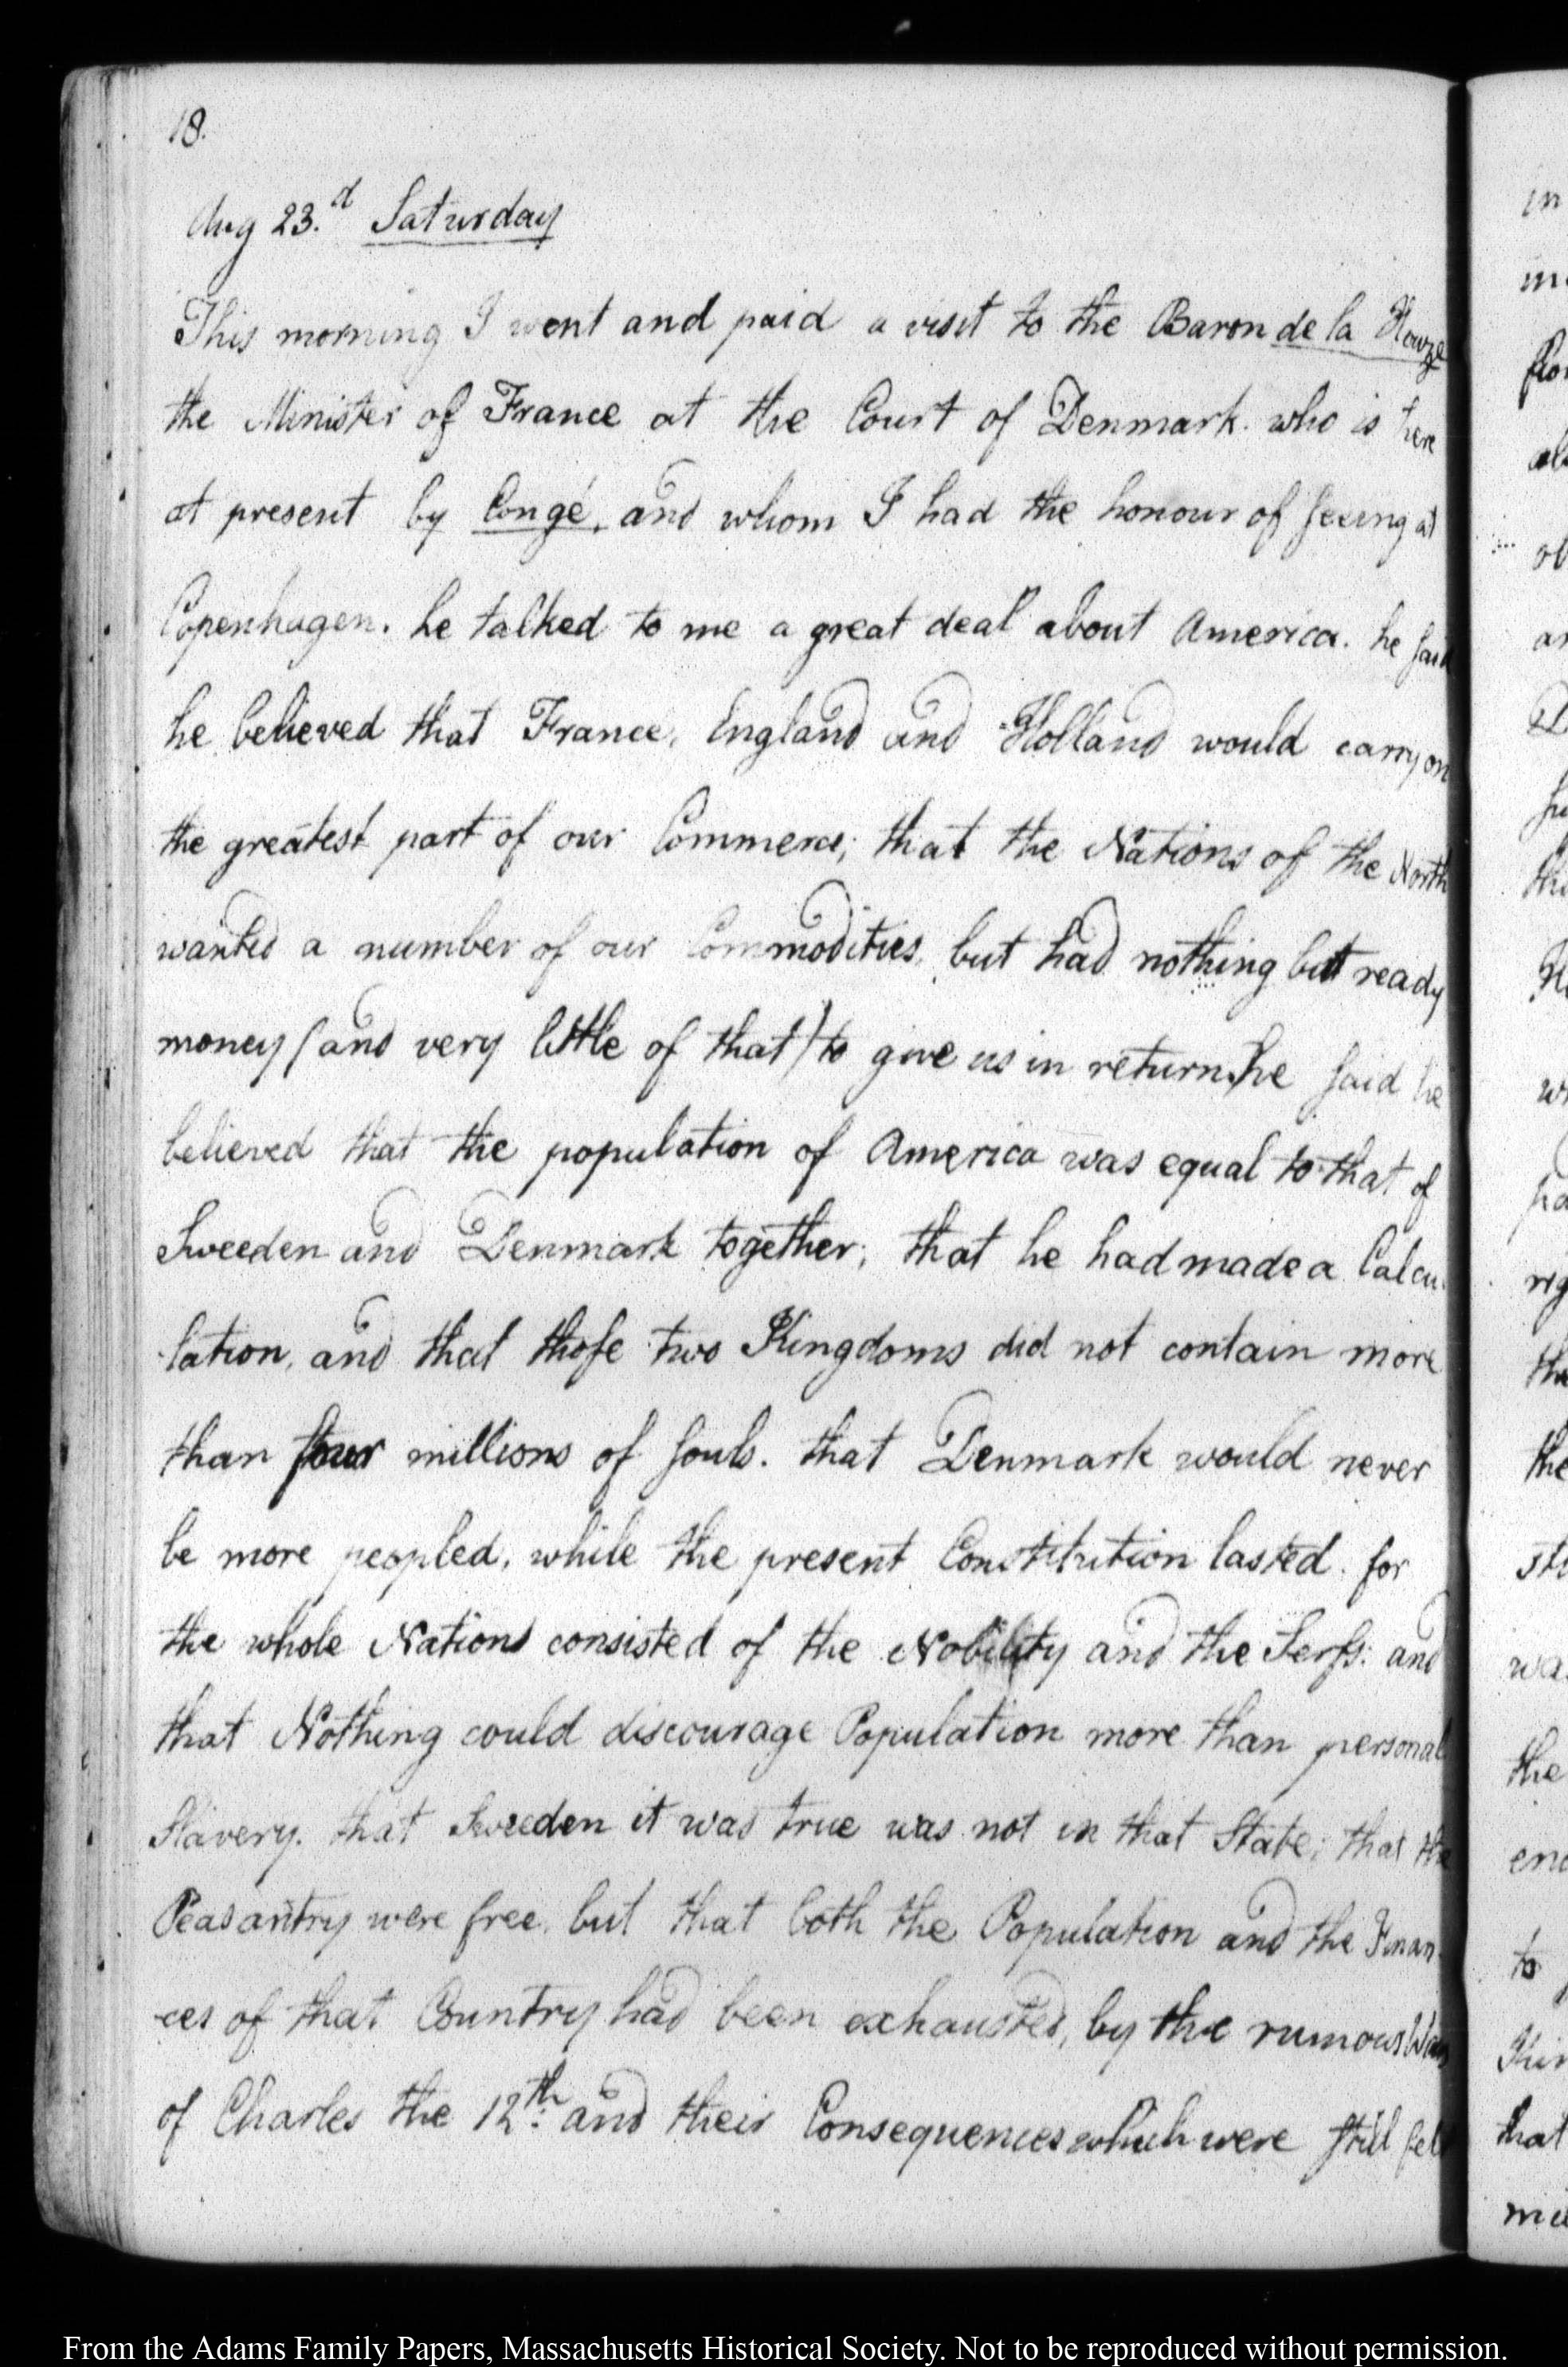 18.
Aug 23.d Saturday
This morning I went and paid a visit to the Baron de la Houze
the Minister of France at the Court of Denmark. who is here
at present by Congé, and whom I had the honour of seeing at
Copenhagen. he talked to me a great deal about America. he said
he believed that France, England and Holland would carry on
the greatest part of our Commerce; that the Nations of the North
wanted a number of our Commodities, but had nothing but ready
money (and very little of that) to give us in return. he said he
believed that the population of America was equal to that of
Sweeden and Denmark together; that he had made a Calcu-
-lation, and that those two Kingdoms did not contain more
than four millions of souls. that Denmark would never
be more peopled, while the present Constitution lasted. for
the whole Nations consisted of the Nobility and the Serfs: and
that Nothing could discourage Population more than personal
Slavery. that Sweeden it was true was not in that State; that the
Peasantry were free. but that both the Population and the Finan-
-ces of that Country had been exhausted, by the ruinous Wars
of Charles the 12th: and their Consequences which were still felt
From the Adams Family Papers, Massachusetts Historical Society. Not to be reproduced without permission.